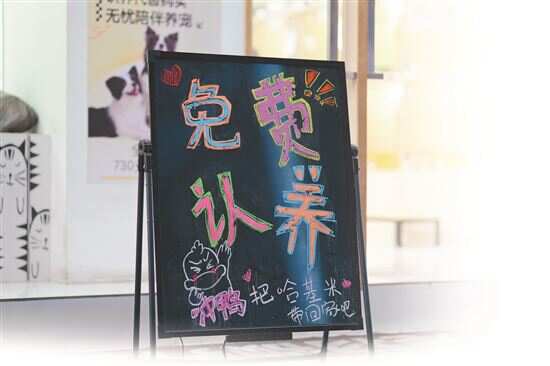 无忧陪伴养宠
730
免费!!
认养
冲鸭 把哈基米
带回家吧